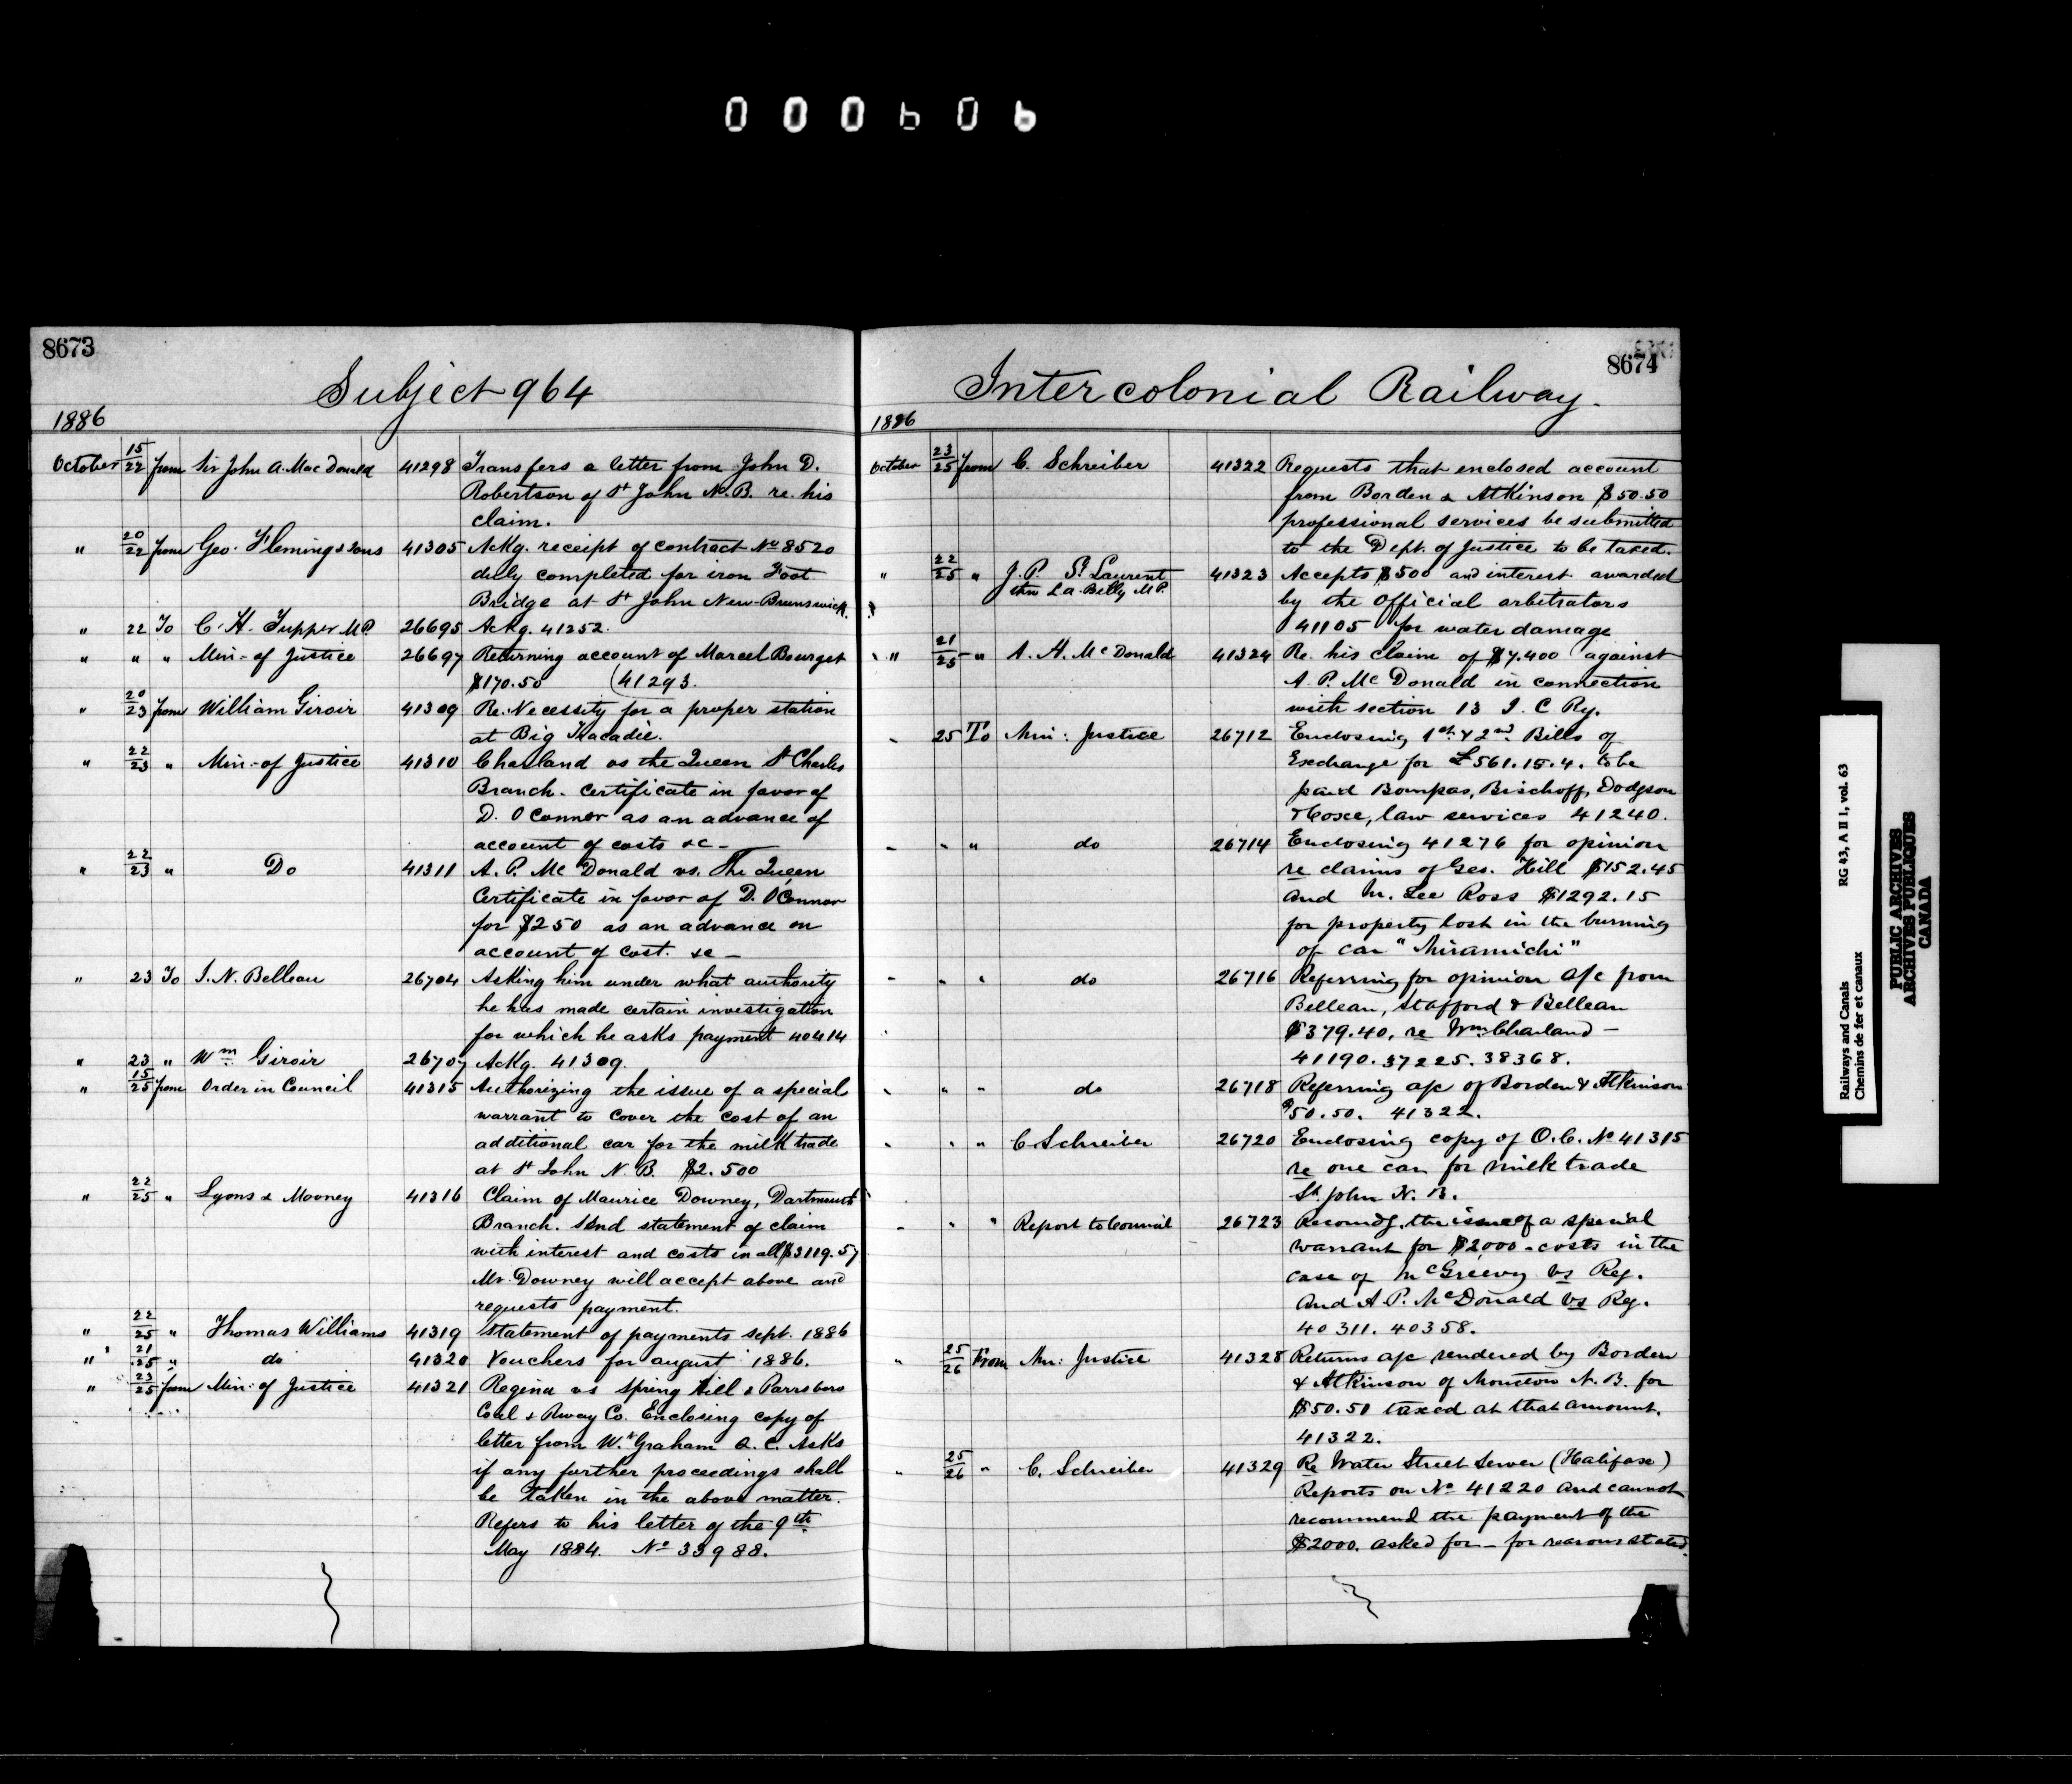 000606
8673
Subject 964
1886
October 15/22 from Sir John A. Mac Donald 41298 Transfers a letter from John D.
Robertson of St John N.B. re. his
claim.
" 20/22 from Geo. Fleming & Sons 41305 Ackg. receipt of contract No 8520
duly completed for iron Foot
Bridge at St John New-Brunswick.
" 22 To C. H. Tupper M.P. 26695 Ackg. 41252.
" " " Min: of Justice 26697 Returning account of Marcel Bourget
$170.50 (41293.
" 20/23 from William Giroir 41309 Re. Necessity for a proper station
at Big Tracadie.
" 22/23 " Min: of Justice 41310 Charland vs the Queen St Charles
Branch. Certificate in favor of
D. O'Connor as an advance of
account of costs &c -
" 22/23 " Do 41311 A. P. McDonald vs. The Queen
Certificate in favor of D. O'Connor
for $250 as an advance on
account of cost. &c -
" 23 To I. N. Belleau 26704 Asking him under what authority
he has made certain investigation
for which he asks payment 40414
" 23 " Wm Giroir 26707 Ackg. 41309.
" 15/25 from Order in Council 41315 Authorizing the issue of a special
warrant to cover the cost of an
additional car for the milk trade
at St John N. B. $2.500
" 22/25 " Lyons & Mooney 41316 Claim of Maurice Downey, Dartmouth
Branch. Send statement of claim
with interest and costs in all $3119.57
Mr. Downey will accept above and
requests payment.
" 22/25 " Thomas Williams 41319 Statement of payments Sept. 1886
" 21/25 " do 41320 Vouchers for august 1886.
" 23/25 from Min: of Justice 41321 Regina vs Spring Hill & Parrsboro
Coal & Rway Co. Enclosing copy of
letter from W. Graham Q. C. Asks
if any further proceedings shall
be taken in the above matter.
Refers to his letter of the 9th
May 1884. No 33988.
8674
Intercolonial Railway.
1886
October 23/25 from C. Schreiber 41322 Requests that enclosed account
from Borden & Atkinson $50.50
professional services be submitted
to the Dept. of Justice to be taxed.
" 22/25 " J. P. St Laurent 41323 Accepts $500 and interest awarded
thro La Billy M.P.
by the Official arbitrators
41105 for water damage
" 21/25 " A. H. McDonald 41324 Re. his claim of $7.400 against
A. P. McDonald in connection
with section 13 I. C Ry.
" 25 To Min: Justice 26712 Enclosing 1st & 2nd Bills of
Exchange for £561.15.4. to be
paid Bompas, Bischoff, Dodgson
& Coxe, law services 41240.
" " " do 26714 Enclosing 41276 for opinion
re claims of Geo. Hill $152.45
and M. Lee Ross $1292.15
for property lost in the burning
of car "Miramichi"
" " " do 26716 Referring for opinion a/c from
Belleau, Stafford & Belleau
$379.40, re Wm Charland -
41190. 37225. 38368.
" " " do 26718 Referring a/c of Borden & Atkinson
$50.50. 41322.
" " " C Schreiber 26720 Enclosing copy of O. C. No 41315
re one car for milk trade
St. John N. B.
" " " Report to Council 26723 Recomdg. the issue of a special
warrant for $2000 - costs in the
case of McGreevy vs Reg.
and A. P. McDonald vs Reg.
40311. 40358.
" 25/26 From Min: Justice 41328 Returns a/c rendered by Borden
& Atkinson of Moncton N. B. for
$50.50 taxed at that amount.
41322.
" 25/26 " C. Schreiber 41329 Re Water Street Sewer (Halifax)
Reports on No 41220 and cannot
recommend the payment of the
$2000. asked for - for reasons stated.
Railways and Canals RG 43, A II 1, vol. 63
Chemins de fer et canaux
PUBLIC ARCHIVES
ARCHIVES PUBLIQUES
CANADA